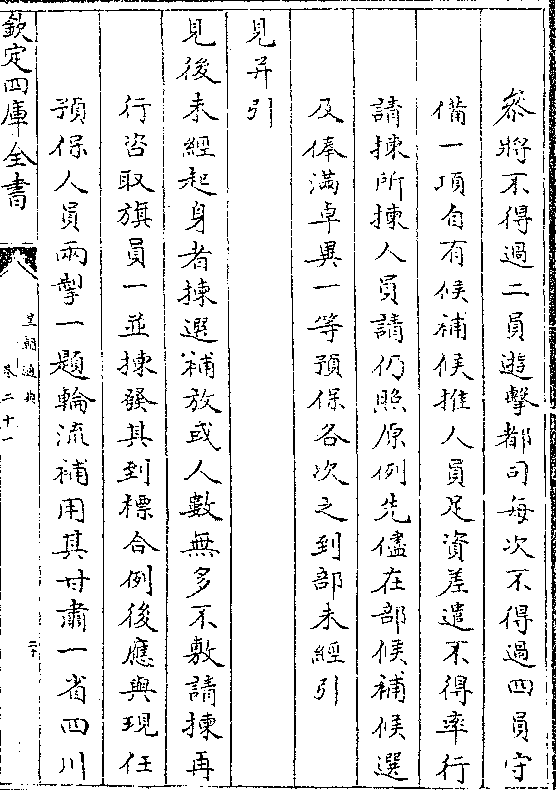 叅將不得過二員遊擊都司每次不得過四員守
備一項自有候補候推人員足資差遣不得率行
請揀所揀人員請仍照原例先儘在部候補候選
及俸滿卓異一等預保各次之到部未經引
見并引
見後未經起身者揀選補放或人數無多不敷請揀再
行咨取旗員一並揀發其到標合例後應與現任
預保人員兩掣一題輪流補用其甘肅一省四川
欽定四庫全書
皇朝通典
卷二十一